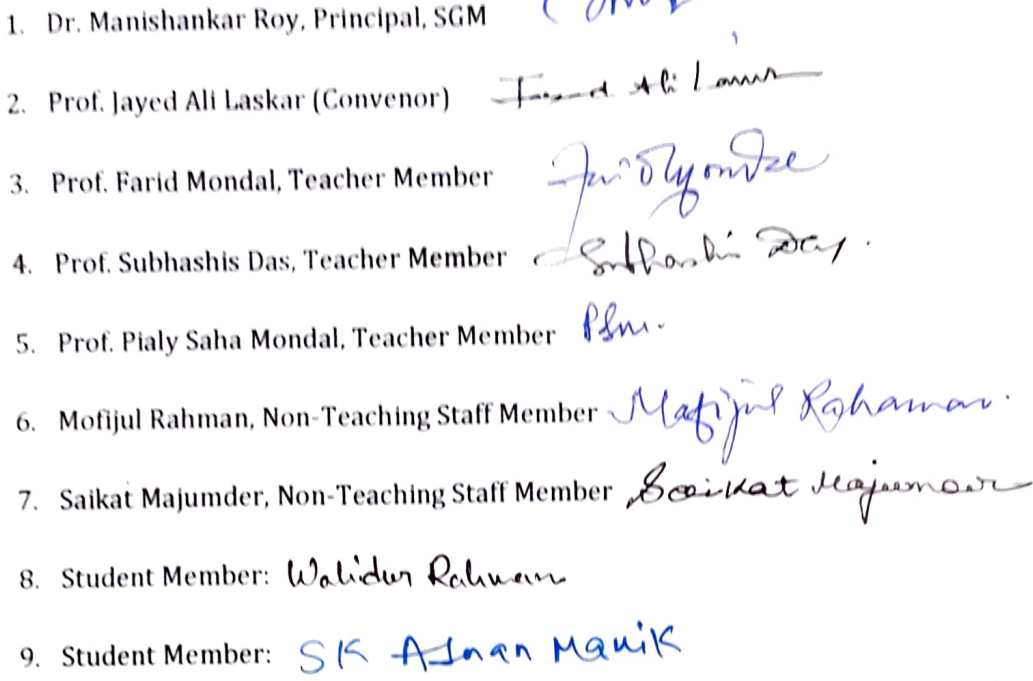 1. Dr. Manishankar Roy, Principal, SGM
2. Prof. Jayed Ali Laskar (Convenor) Ali
3. Prof. Farid Mondal, Teacher Member
4. Prof. Subhashis Das, Teacher Member Subhashis
5. Prof. Pialy Saha Mondal, Teacher Member PSm.
6. Mofijul Rahman, Non-Teaching Staff Member Mafijul Rahaman.
7. Saikat Majumder, Non-Teaching Staff Member Saikat Majumder
8. Student Member: Walidur Rahman
9. Student Member: SK Manik